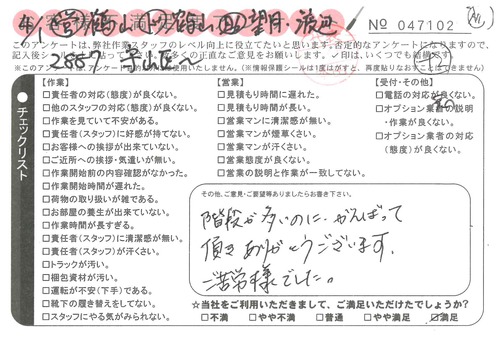 No 047102
このアンケートは、弊社作業スタッフのレベル向上に役立てたいと思います。否定的なアンケートになりますので、
※このアンケートは、
【作業】
□責任者の対応(態度)が良くない。
□他のスタッフの対応(態度)が良くない。
□作業を見ていて不安がある。
□責任者(スタッフ)に好感が持てない。
□お客様への挨拶が出来ていない。
□ご近所への挨拶・気遣いが無い。
□作業開始前の内容確認がなかった。
□作業開始時間が遅れた。
□荷物の取り扱いが雑である。
□お部屋の養生が出来ていない。
□作業時間が長すぎる。
□責任者(スタッフ)に清潔感が無い。
□責任者(スタッフ)が汗くさい。
□トラックが汚い。
□梱包資材が汚い。
□運転が不安(下手)である。
□靴下の履き替えをしてない。
□スタッフにやる気がみられない。
【営業】
□見積もり時間に遅れた。
□見積もり時間が長い。
□営業マンに清潔感が無い。
□営業マンが煙草くさい。
□営業マンが汗くさい。
□営業態度が良くない。
□営業の説明と作業が一致してない。
【受付・その他】
□電話の対応が良くない。
□オプション業者の説明
・作業が良くない。
□オプション業者の対応
(態度)が良くない。
チェックリスト
その他、ご意見・ご要望等ありましたらお書き下さい。
階段が多いのに、がんばって
頂きありがとうございます。
ご苦労様でした。
☆当社をご利用いただきまして、ご満足いただけたでしょうか?
□不満 □やや不満 □普通 □やや満足 ☑満足